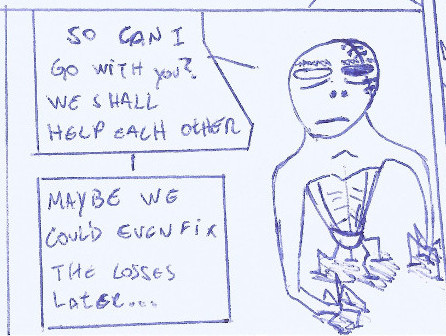 SO CAN I
GO WITH YOU?
WE SHALL
HELP EACH OTHER
MAYBE WE
COULD EVEN FIX
THE LOSSES
LATER...